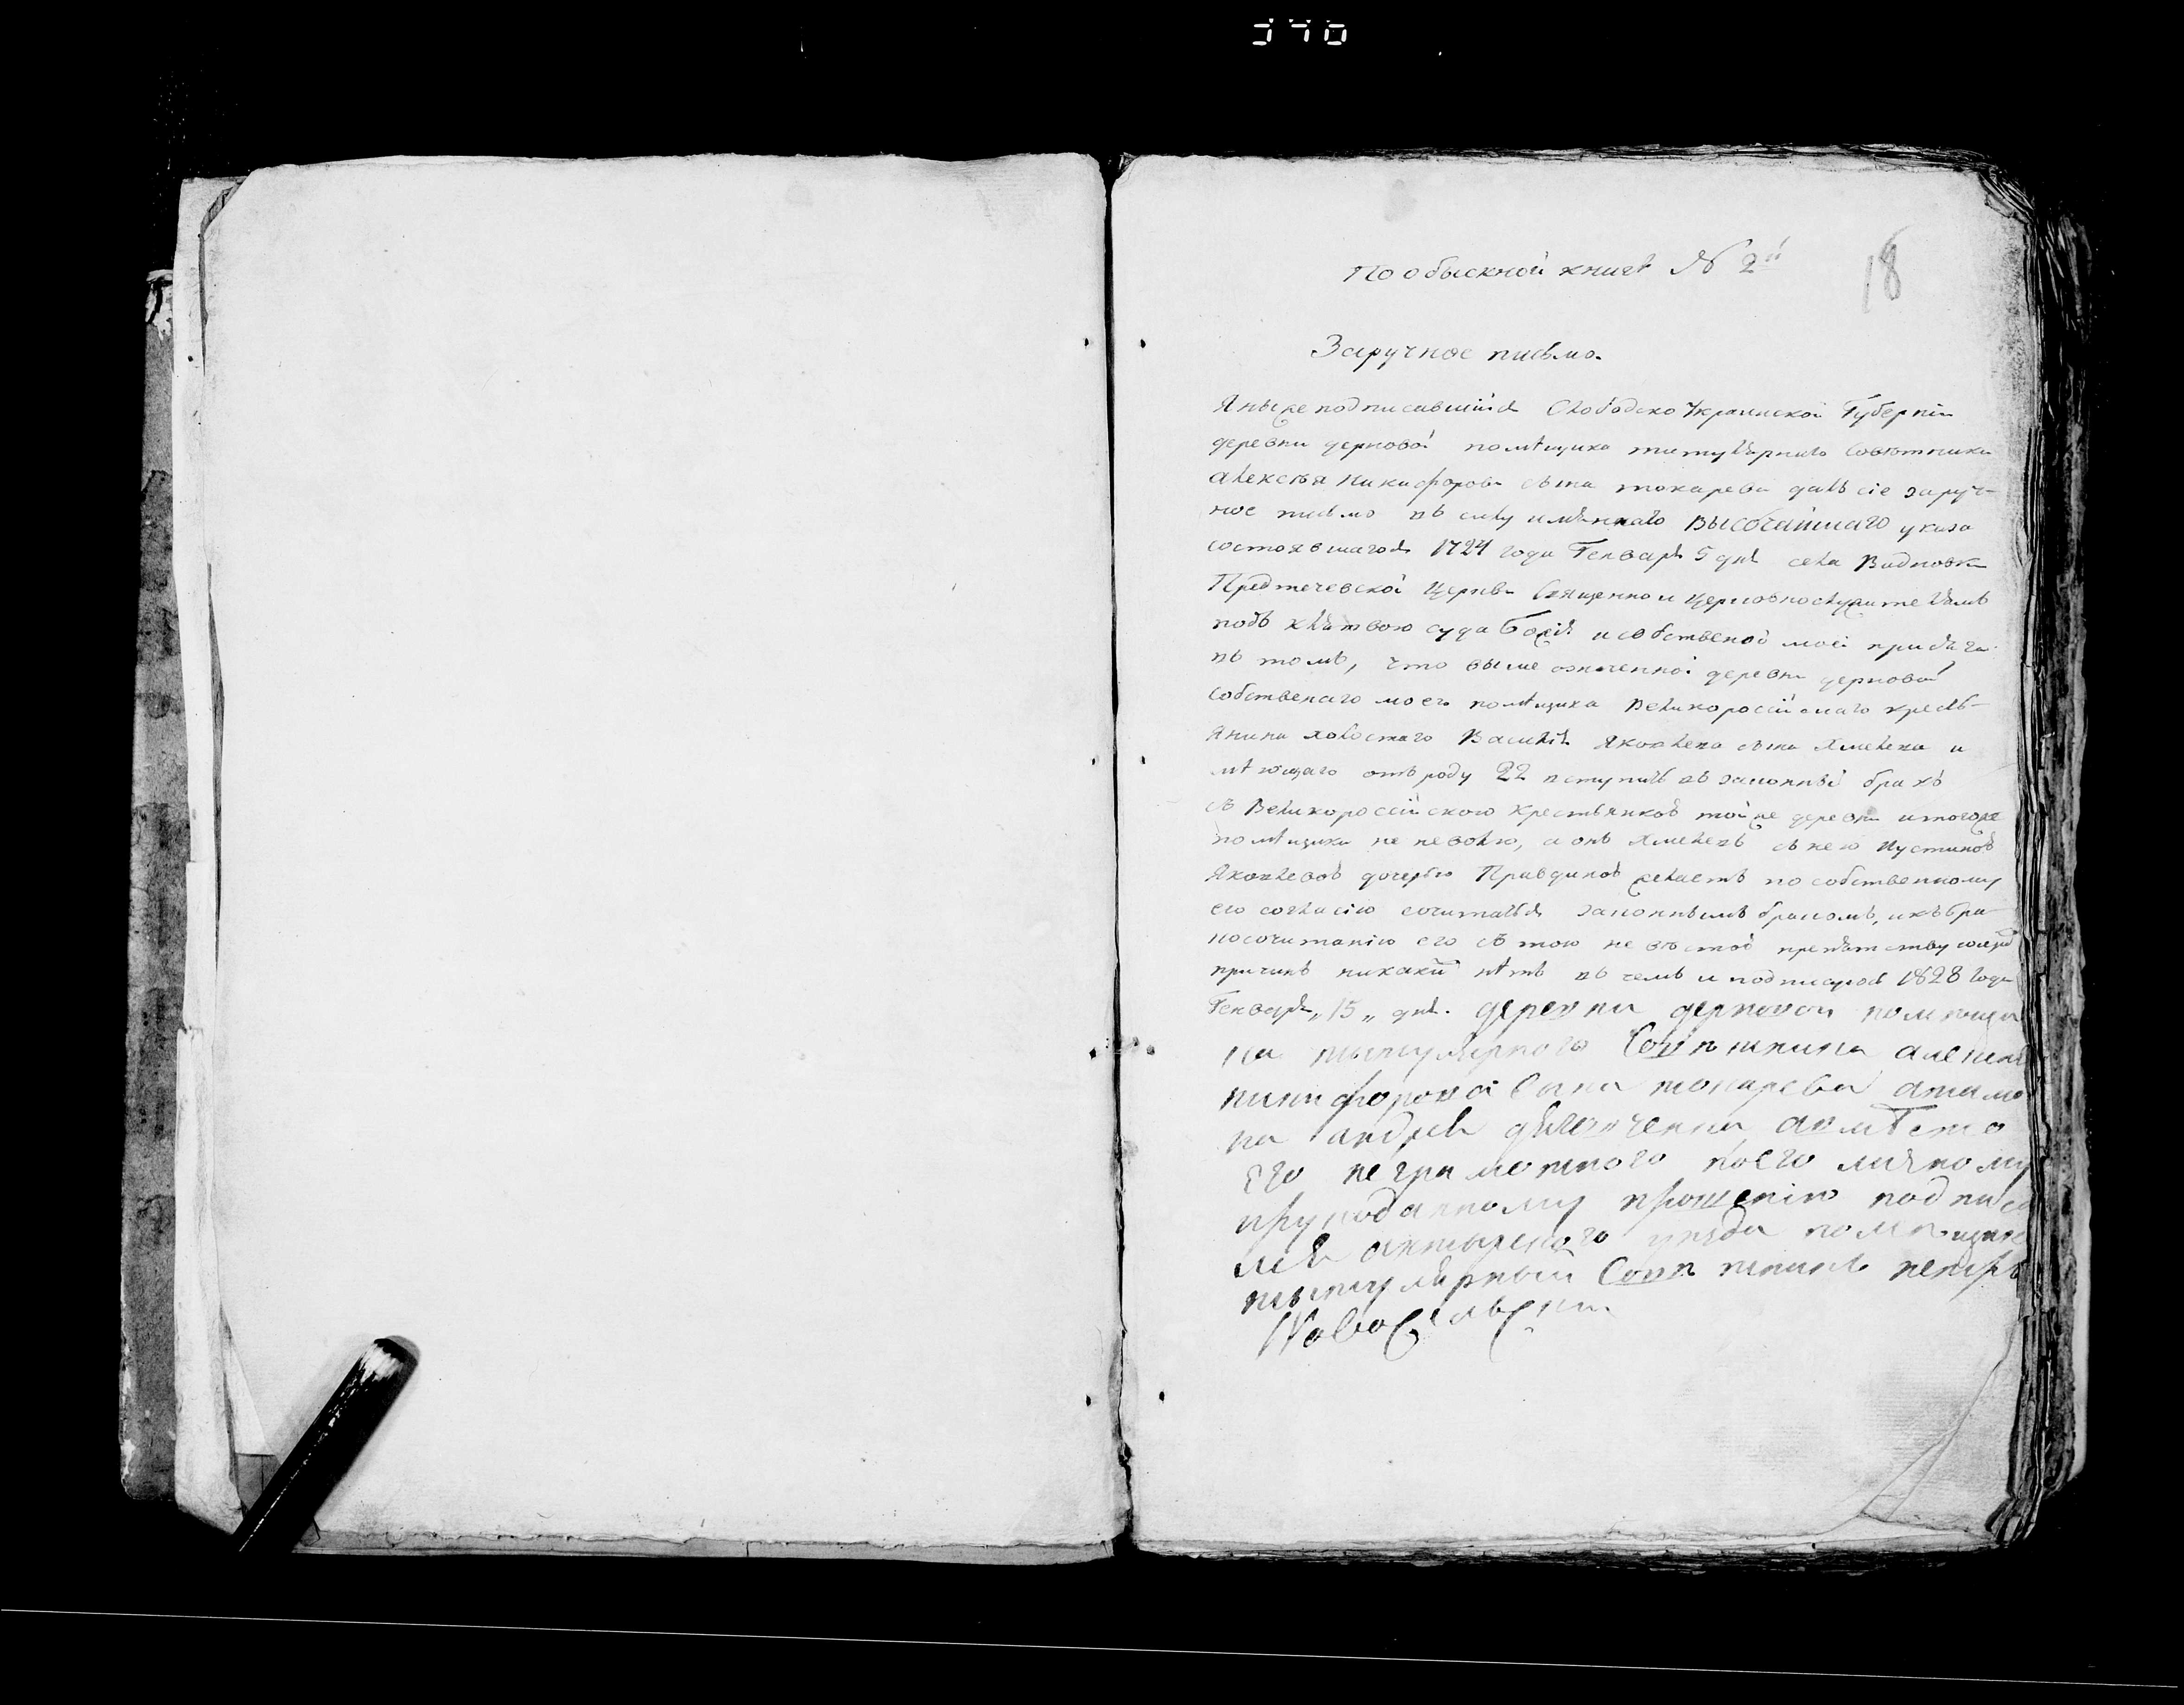 По обыскной книгѣ № 2й
18
Заручное письмо.
Я ниже подписавшійся Слободско Украинской Губерніи
деревни дерновой помѣщика титулярнаго Совѣтника
алексѣя Никифорова сына токарева далъ сіе заруч-
ное письмо въ силу имяннаго Высочайшаго указа
состоявшагося 1724 года Генваря 5 дня села
Предтечевской Церкви Священно и Церковнослужителямъ
подъ клятвою суда Божія и собственой моей присяги
въ томъ, что выше означенной деревни дерновой
собственаго моего помѣщика Великороссійскаго кресть-
янина холостаго Василія Яковлева сына Хмелева и
мѣющаго отъ роду 22 вступить въ законный бракъ
съ Великороссійскою крестьянкою той же деревни и тогоже
помѣщика не неволю, а онъ Хмелевъ съ нею Иустиною
Яковлевою дочерью Правдиною желаетъ по собственному
его согласію сочитатся законнымъ бракомъ, и къ бра-
косочитанію его съ тою невѣстою препятствующей
причинъ никакй нѣтъ въ чемъ и подписуюсь 1828 года
Генваря „15„ дня. деревни дерновои помѣщи
ка титулярного Совѣтника алексѣя
никифорова Сына токарева атамо
на андрея а вмѣсто
Его неграмотного поего личному
ирукоданному прошенію подписа
лся ахтырского уѣзда помѣщикъ
титулярный Совѣтникъ петръ